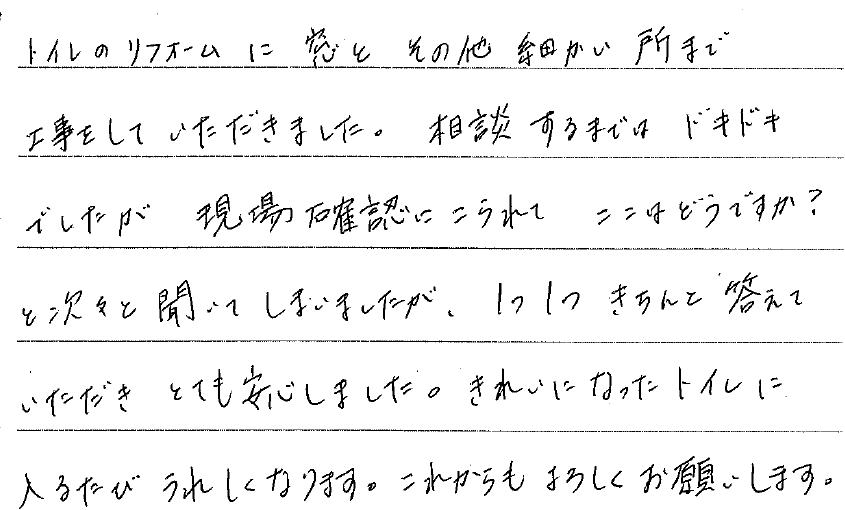 トイレのリフォームに 窓と その他 細かい 所まで
工事をして いただきました。 相談 するまでは ドキドキ
でしたが 現場確認に こられて ここはどうですか?
と次々と 聞いて しまいましたが、 1つ1つ きちんと 答えて
いただき とても安心しました。きれいになったトイレに
入るたび うれしくなります。これからも よろしく お願いします。